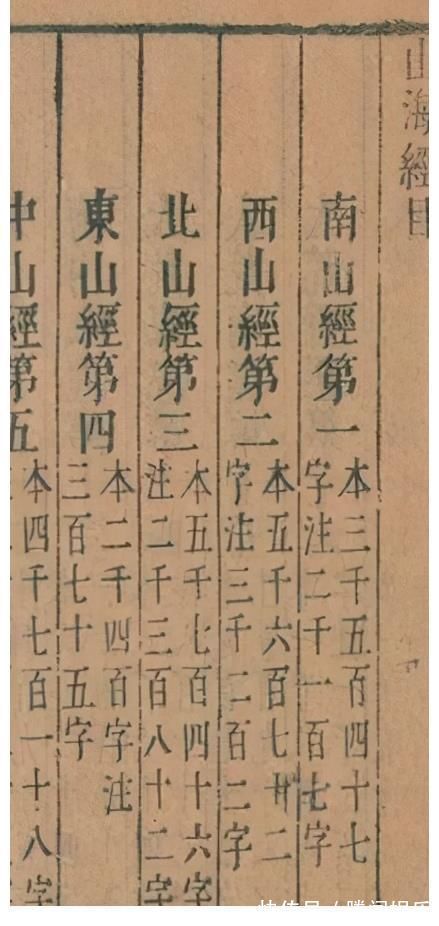 山海經目
南山經第一
本三千五百四十七
字注二千一百七字
西山經第二
本五千六百七廿二
字注三千二百二字
北山經第三
本五千七百四十六字
注二千三百八十二字
東山經第四
本二千四百字注
三百七十五字
中山經第五
本四千七百一十八字